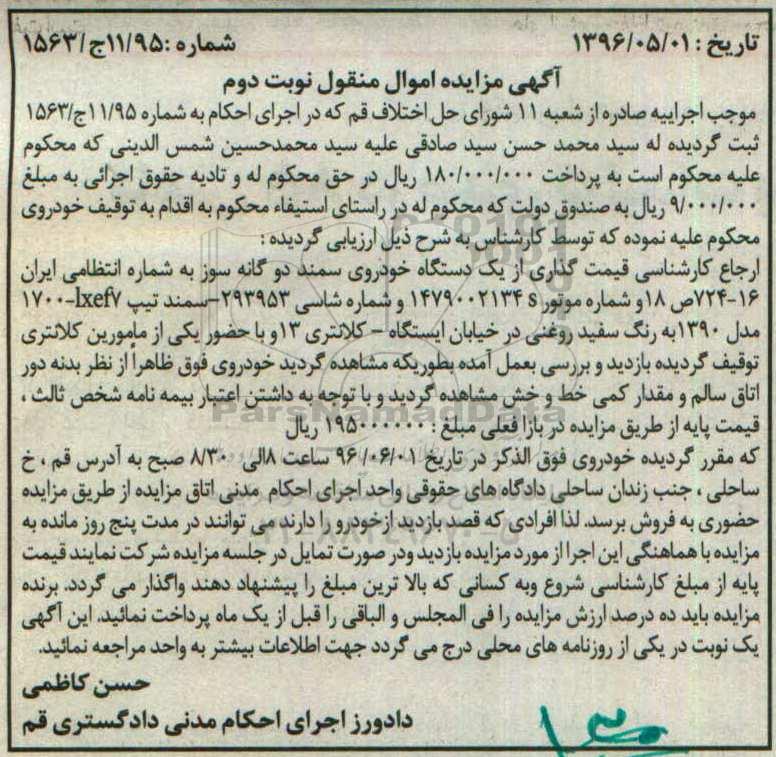 تاریخ : ۱۳۹۶/۰۵/۰۱
شماره :۱۱/۹۵ج/۱۵۶۳
آگهی مزایده اموال منقول نوبت دوم
موجب اجراییه صادره از شعبه ۱۱ شورای حل اختلاف قم که در اجرای احکام به شماره ۱۱/۹۵ج/۱۵۶۳
ثبت گردیده له سید محمد حسن سید صادقی علیه سید محمدحسین شمس الدینی که محکوم
علیه محکوم است به پرداخت ۱۸۰/۰۰۰/۰۰۰ ریال در حق محکوم له و تادیه حقوق اجرائی به مبلغ
۹/۰۰۰/۰۰۰ ریال به صندوق دولت که محکوم له در راستای استیفاء محکوم به اقدام به توقیف خودروی
محکوم علیه نموده که توسط کارشناس به شرح ذیل ارزیابی گردیده :
ارجاع کارشناسی قیمت گذاری از یک دستگاه خودروی سمند دو گانه سوز به شماره انتظامی ایران
۱۶-۷۲۴ص ۱۸و شماره موتور ۱۴۷۹۰۰۲۱۳۴ s و شماره شاسی ۲۹۳۹۵۳-سمند تیپ lxef۷-۱۷۰۰
مدل ۱۳۹۰به رنگ سفید روغنی در خیابان ایستگاه - کلانتری ۱۳و با حضور یکی از مامورین کلانتری
توقیف گردیده بازدید و بررسی بعمل آمده بطوریکه مشاهده گردید خودروی فوق ظاهراً از نظر بدنه دور
اتاق سالم و مقدار کمی خط و خش مشاهده گردید و با توجه به داشتن اعتبار بیمه نامه شخص ثالث ،
قیمت پایه از طریق مزایده در بازا فعلی مبلغ : ۱۹۵۰۰۰۰۰۰ ریال
که مقرر گردیده خودروی فوق الذکر در تاریخ ۹۶/۰۶/۰۱ ساعت ۸الی ۸/۳۰ صبح به آدرس قم ، خ
ساحلی ، جنب زندان ساحلی دادگاه های حقوقی واحد اجرای احکام مدنی اتاق مزایده از طریق مزایده
حضوری به فروش برسد. لذا افرادی که قصد بازدید ازخودرو را دارند می توانند در مدت پنج روز مانده به
مزایده با هماهنگی این اجرا از مورد مزایده بازدید ودر صورت تمایل در جلسه مزایده شرکت نمایند قیمت
پایه از مبلغ کارشناسی شروع وبه کسانی که بالا ترین مبلغ را پیشنهاد دهند واگذار می گردد. برنده
مزایده باید ده درصد ارزش مزایده را فی المجلس و الباقی را قبل از یک ماه پرداخت نمائید. این آگهی
یک نوبت در یکی از روزنامه های محلی درج می گردد جهت اطلاعات بیشتر به واحد مراجعه نمائید.
حسن کاظمی
دادورز اجرای احکام مدنی دادگستری قم
ParsNamadData